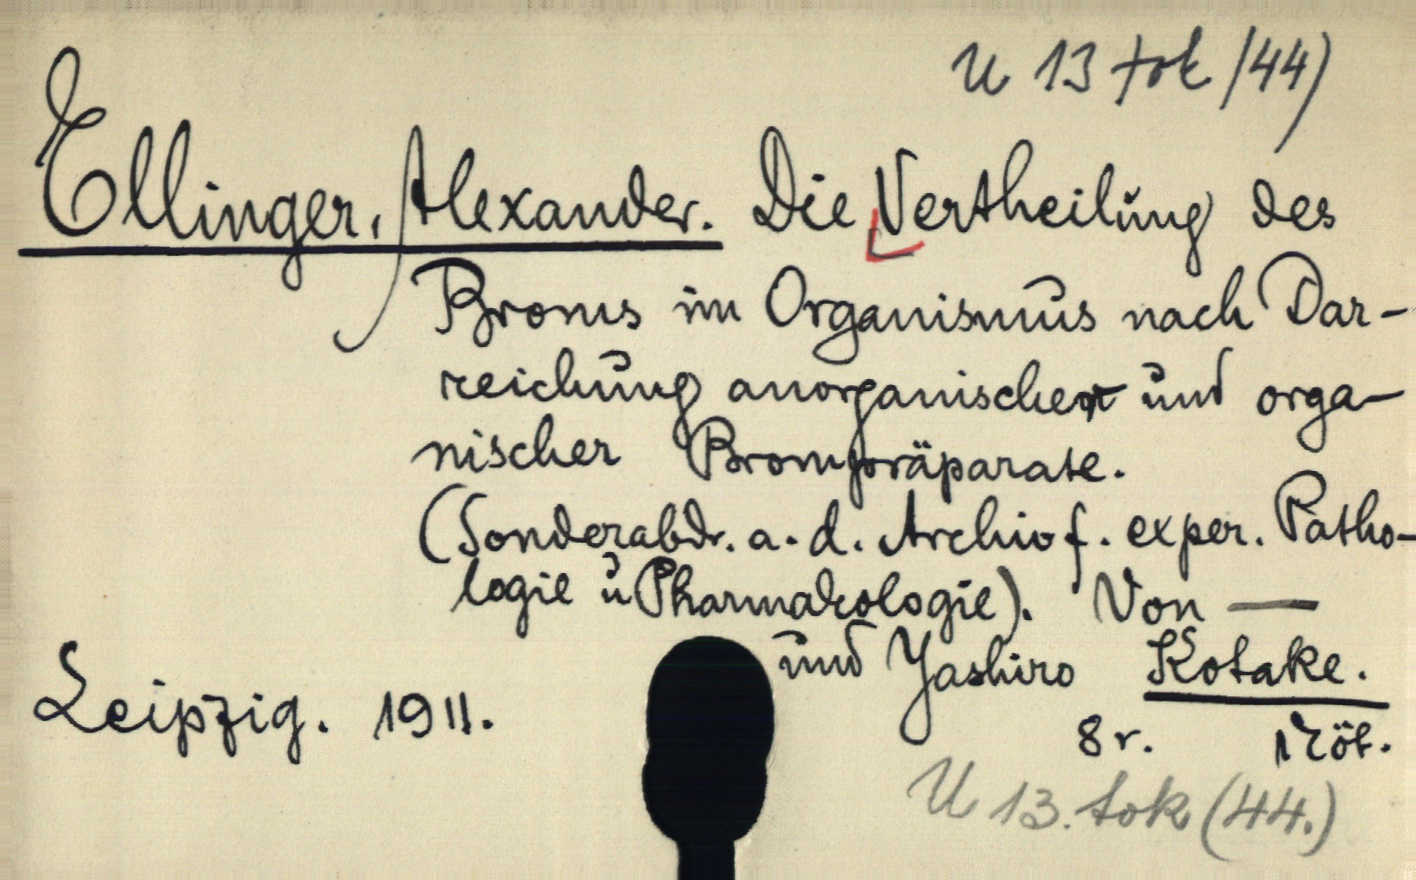 U 13 tok (44)
Ellinger, Alexander. Die Vertheilung des
Broms im Organismus nach Dar-
reichung anorganischer und orga-
nischer Brompräparate.
(Sonderabdr. a. d. Archiv f. exper. Patho-
logie u Pharmakologie). Von —
und Yashiro Kotake.
Leipzig. 1911.
8 r. 1 köt.
U 13. tok (44.)